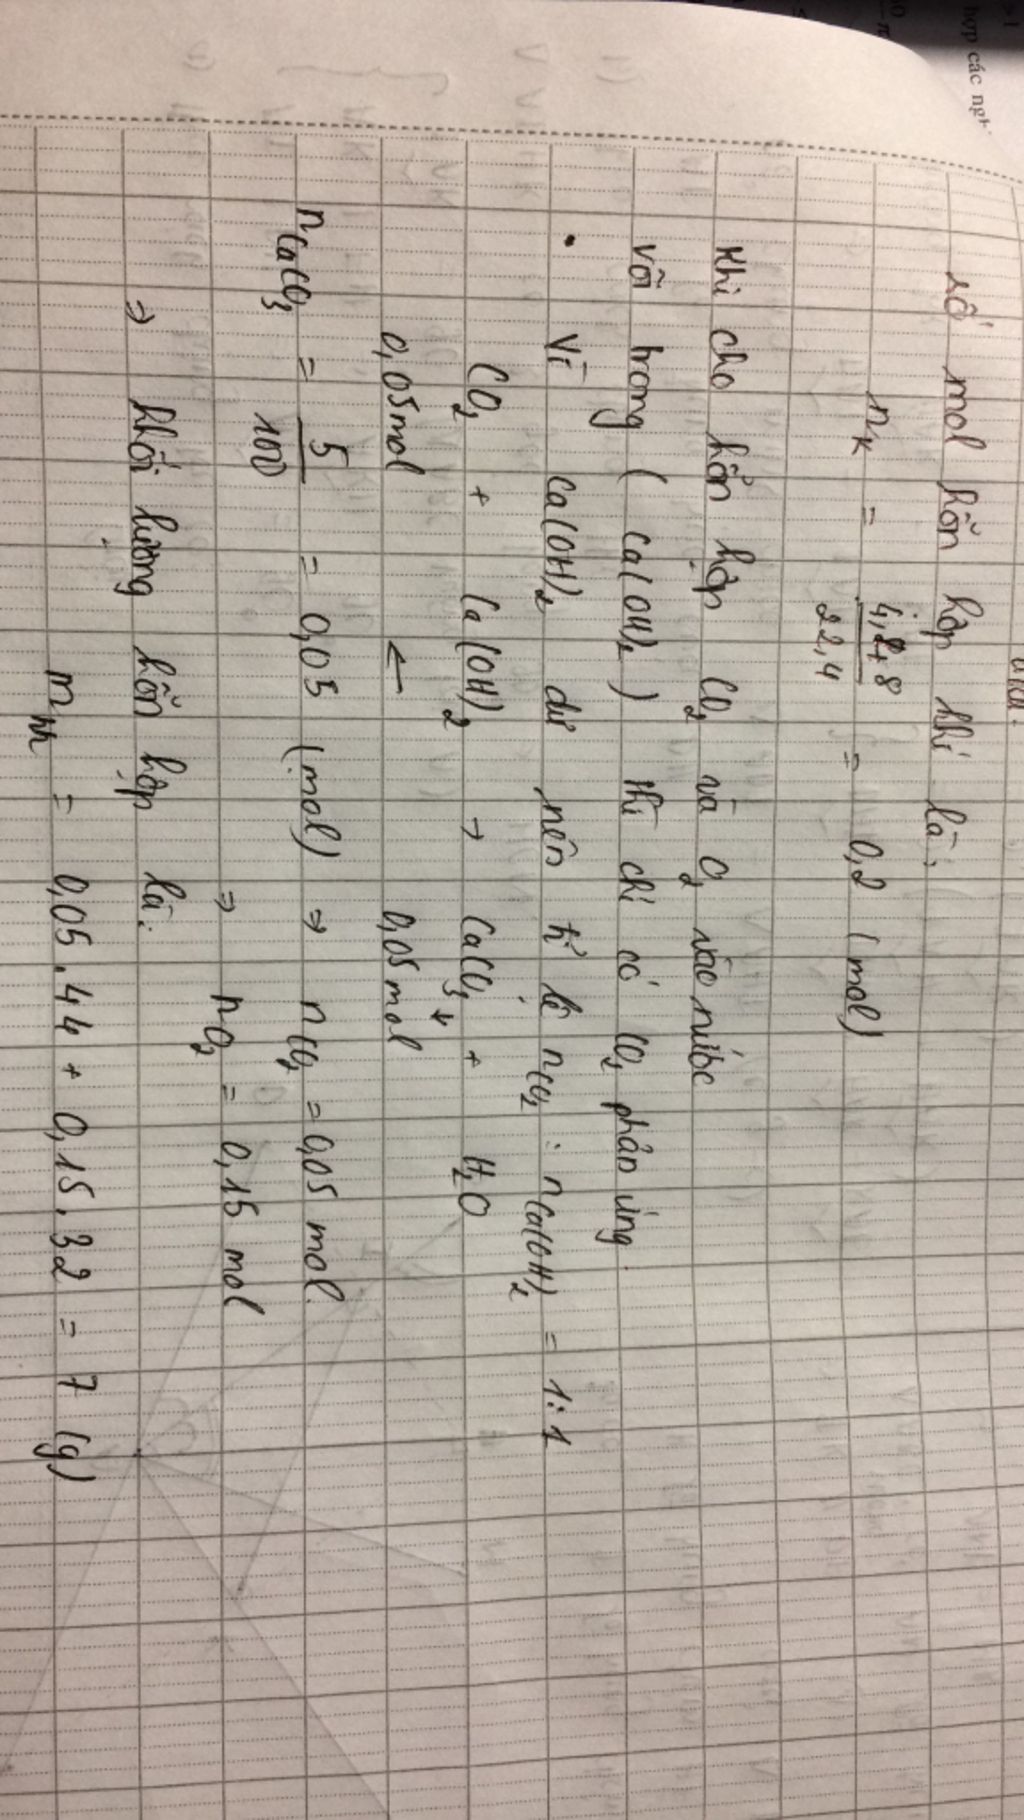 >1
hợp các ngh
số mol hỗn hợp khí là:
nₖ = 4,48 / 22,4 = 0,2 (mol)
Khi cho hỗn hợp CO₂ và O₂ vào nước
vôi trong ( Ca(OH)₂ ) thì chỉ có CO₂ phản ứng
• Vì Ca(OH)₂ dư nên tỉ lệ nCO₂ : nCa(OH)₂ = 1:1
CO₂ + Ca(OH)₂ → CaCO₃↓ + H₂O
0,05mol ← 0,05mol
nCaCO₃ = 5/100 = 0,05 (mol) ⇒ nCO₂ = 0,05 mol.
⇒ nO₂ = 0,15 mol
⇒ khối lượng hỗn hợp là:
mhh = 0,05.44 + 0,15.32 = 7 (g)